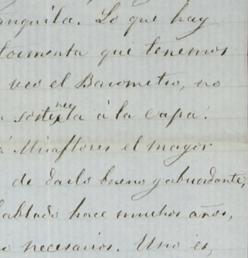 anquila. Lo que hay
tormenta que tenemos
veo el Barometro, no
sostenerla á la capa.
Miraflores el mayor
de darlo bueno y abundante,
hablado hace muchos años,
necesarios. Uno es,